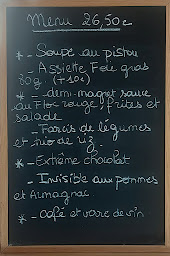 Menu 26,50€
* - Soupe au pistou
- Assiette Foie gras
80g (+10€)
* - demi-magret sauce
au Floc rouge, frites et
salade
- Farcis de légumes
et riz
* - Extrême chocolat
- Invisible aux pommes
et Armagnac
* - Café et verre de vin